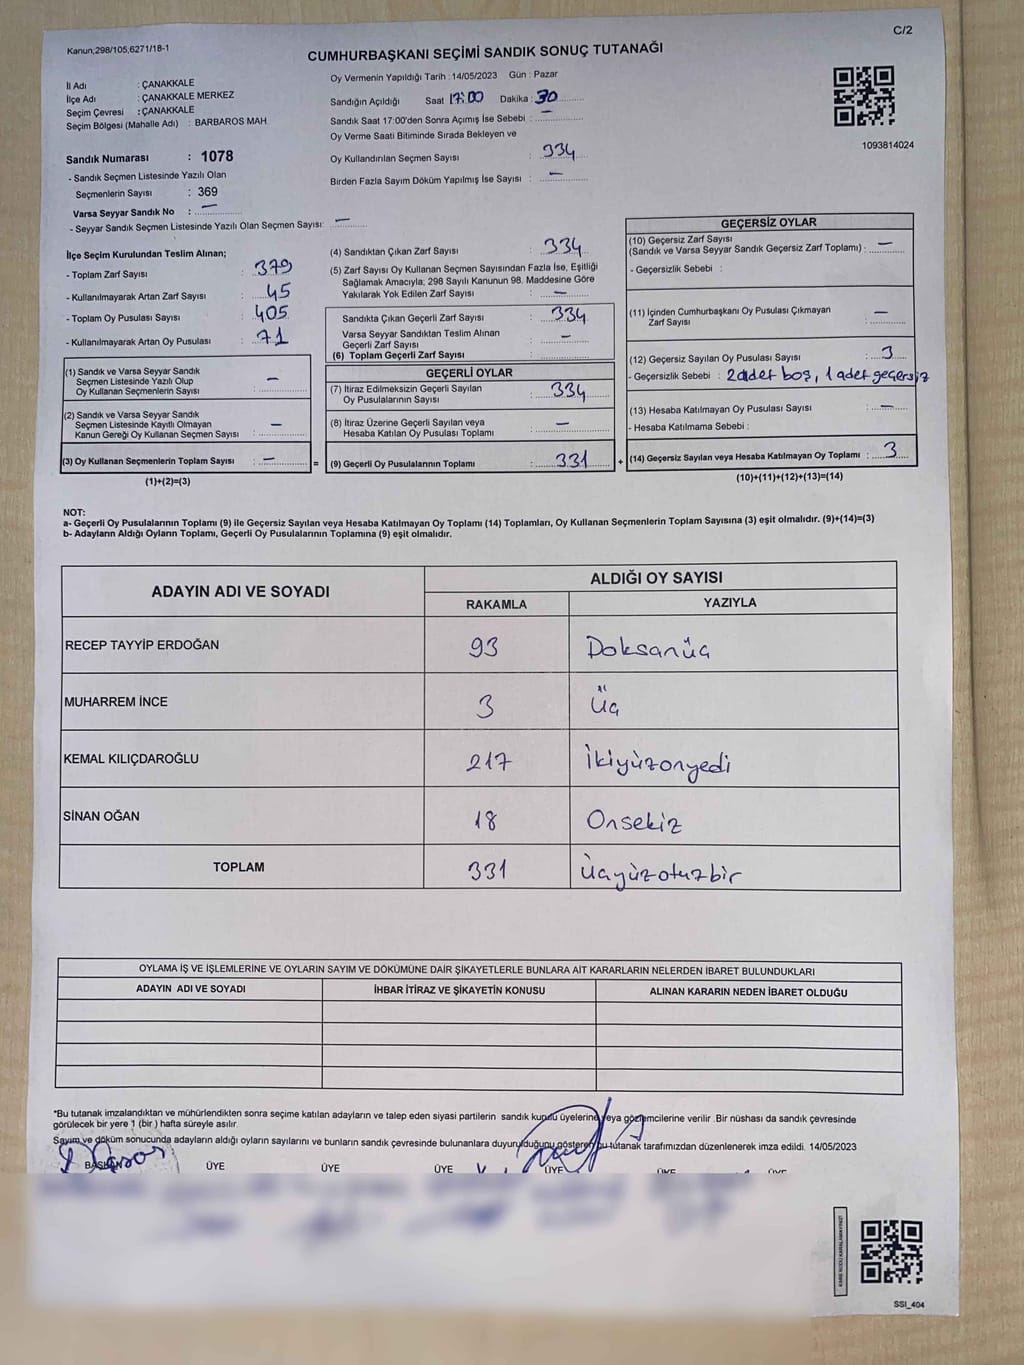 C/2
Kanun,298/105,6271/18-1
CUMHURBAŞKANI SEÇİMİ SANDIK SONUÇ TUTANAĞI
İl Adı : ÇANAKKALE
İlçe Adı : ÇANAKKALE MERKEZ
Seçim Çevresi : ÇANAKKALE
Seçim Bölgesi (Mahalle Adı) : BARBAROS MAH
Sandık Numarası : 1078
- Sandık Seçmen Listesinde Yazılı Olan
Seçmenlerin Sayısı : 369
Varsa Seyyar Sandık No : —
- Seyyar Sandık Seçmen Listesinde Yazılı Olan Seçmen Sayısı: —
Oy Vermenin Yapıldığı Tarih : 14/05/2023 Gün : Pazar
Sandığın Açıldığı Saat 17:00 Dakika : 30
Sandık Saat 17:00'den Sonra Açımış İse Sebebi : —
Oy Verme Saati Bitiminde Sırada Bekleyen ve
Oy Kullandırılan Seçmen Sayısı : 334
Birden Fazla Sayım Döküm Yapılmış İse Sayısı : —
1093814024
İlçe Seçim Kurulundan Teslim Alınan;
- Toplam Zarf Sayısı : 379
- Kullanılmayarak Artan Zarf Sayısı : 45
- Toplam Oy Pusulası Sayısı : 405
- Kullanılmayarak Artan Oy Pusulası : 71
(1) Sandık ve Varsa Seyyar Sandık
Seçmen Listesinde Yazılı Olup
Oy Kullanan Seçmenlerin Sayısı : —
(2) Sandık ve Varsa Seyyar Sandık
Seçmen Listesinde Kayıtlı Olmayan
Kanun Gereği Oy Kullanan Seçmen Sayısı : —
(3) Oy Kullanan Seçmenlerin Toplam Sayısı : —
(1)+(2)=(3)
=
(4) Sandıktan Çıkan Zarf Sayısı : 334
(5) Zarf Sayısı Oy Kullanan Seçmen Sayısından Fazla İse, Eşitliği
Sağlamak Amacıyla; 298 Sayılı Kanunun 98. Maddesine Göre
Yakılarak Yok Edilen Zarf Sayısı : —
Sandıkta Çıkan Geçerli Zarf Sayısı : 334
Varsa Seyyar Sandıktan Teslim Alınan
Geçerli Zarf Sayısı : —
(6) Toplam Geçerli Zarf Sayısı :
GEÇERLİ OYLAR
(7) İtiraz Edilmeksizin Geçerli Sayılan
Oy Pusulalarının Sayısı : 334
(8) İtiraz Üzerine Geçerli Sayılan veya
Hesaba Katılan Oy Pusulası Toplamı : —
(9) Geçerli Oy Pusulalarının Toplamı : 331
+
GEÇERSİZ OYLAR
(10) Geçersiz Zarf Sayısı
(Sandık ve Varsa Seyyar Sandık Geçersiz Zarf Toplamı) : —
- Geçersizlik Sebebi :
(11) İçinden Cumhurbaşkanı Oy Pusulası Çıkmayan
Zarf Sayısı : —
(12) Geçersiz Sayılan Oy Pusulası Sayısı : 3
- Geçersizlik Sebebi : 2 adet boş, 1 adet geçersiz
(13) Hesaba Katılmayan Oy Pusulası Sayısı : —
- Hesaba Katılmama Sebebi :
(14) Geçersiz Sayılan veya Hesaba Katılmayan Oy Toplamı : 3
(10)+(11)+(12)+(13)=(14)
NOT:
a- Geçerli Oy Pusulalarının Toplamı (9) ile Geçersiz Sayılan veya Hesaba Katılmayan Oy Toplamı (14) Toplamları, Oy Kullanan Seçmenlerin Toplam Sayısına (3) eşit olmalıdır. (9)+(14)=(3)
b- Adayların Aldığı Oyların Toplamı, Geçerli Oy Pusulalarının Toplamına (9) eşit olmalıdır.
ADAYIN ADI VE SOYADI ALDIĞI OY SAYISI
RAKAMLA YAZIYLA
RECEP TAYYİP ERDOĞAN 93 Doksanüç
MUHARREM İNCE 3 Üç
KEMAL KILIÇDAROĞLU 217 İkiyüzonyedi
SİNAN OĞAN 18 Onsekiz
TOPLAM 331 Üçyüzotuzbir
OYLAMA İŞ VE İŞLEMLERİNE VE OYLARIN SAYIM VE DÖKÜMÜNE DAİR ŞİKAYETLERLE BUNLARA AİT KARARLARIN NELERDEN İBARET BULUNDUKLARI
ADAYIN ADI VE SOYADI İHBAR İTİRAZ VE ŞİKAYETİN KONUSU ALINAN KARARIN NEDEN İBARET OLDUĞU
*Bu tutanak imzalandıktan ve mühürlendikten sonra seçime katılan adayların ve talep eden siyasi partilerin sandık kurulu üyelerine veya gözlemcilerine verilir .Bir nüshası da sandık çevresinde
görülecek bir yere 1 (bir ) hafta süreyle asılır.
Sayım ve döküm sonucunda adayların aldığı oyların sayılarını ve bunların sandık çevresinde bulunanlara duyurulduğunu gösteren bu tutanak tarafımızdan düzenlenerek imza edildi. 14/05/2023
BAŞKAN ÜYE ÜYE ÜYE ÜYE ÜYE ÜYE
SSI_404